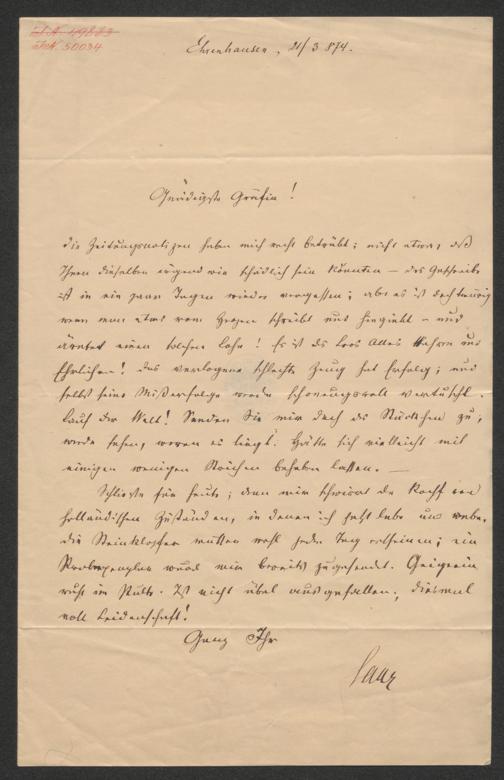 I.N. 49883
I.N. 50034
Ehrenhausen, 21/3 874.
Gnädigste Gräfin!
die Zeitungsnotizen haben mich recht betrübt; nicht etwa, daß
Ihnen dieselben irgend wie schädlich sein könnten – das Geschreibe
ist in ein paar Tagen wieder vergessen; aber es ist doch traurig
wenn man etwas vom Herzen schreibt und hingiebt – und
ärntet einen solchen Lohn! Es ist das Loos Alles Wahren und
Ehrlichen! das verlogene schlechte Zeug hat Erfolg; und
selbst seine Mißerfolge werden schonungsvoll vertuscht.
Lauf der Welt! Senden Sie mir doch das Stückchen zu;
werde sehen, woran es liegt. Hätte sich vielleicht mit
einigen wenigen Strichen beheben lassen. —
Schließe für heute; denn mir schwirrt der Kopf von
holländischen Zuständen, in denen ich jetzt lebe und webe.
die Steinklopfer müssen wohl jeden Tag erscheinen; ein
Probeexemplar wurde mir bereits zugesendet. Geigerin
ruht im Pulte. Ist nicht übel ausgefallen; diesmal
voll Leidenschaft!
Ganz Ihr
Saar